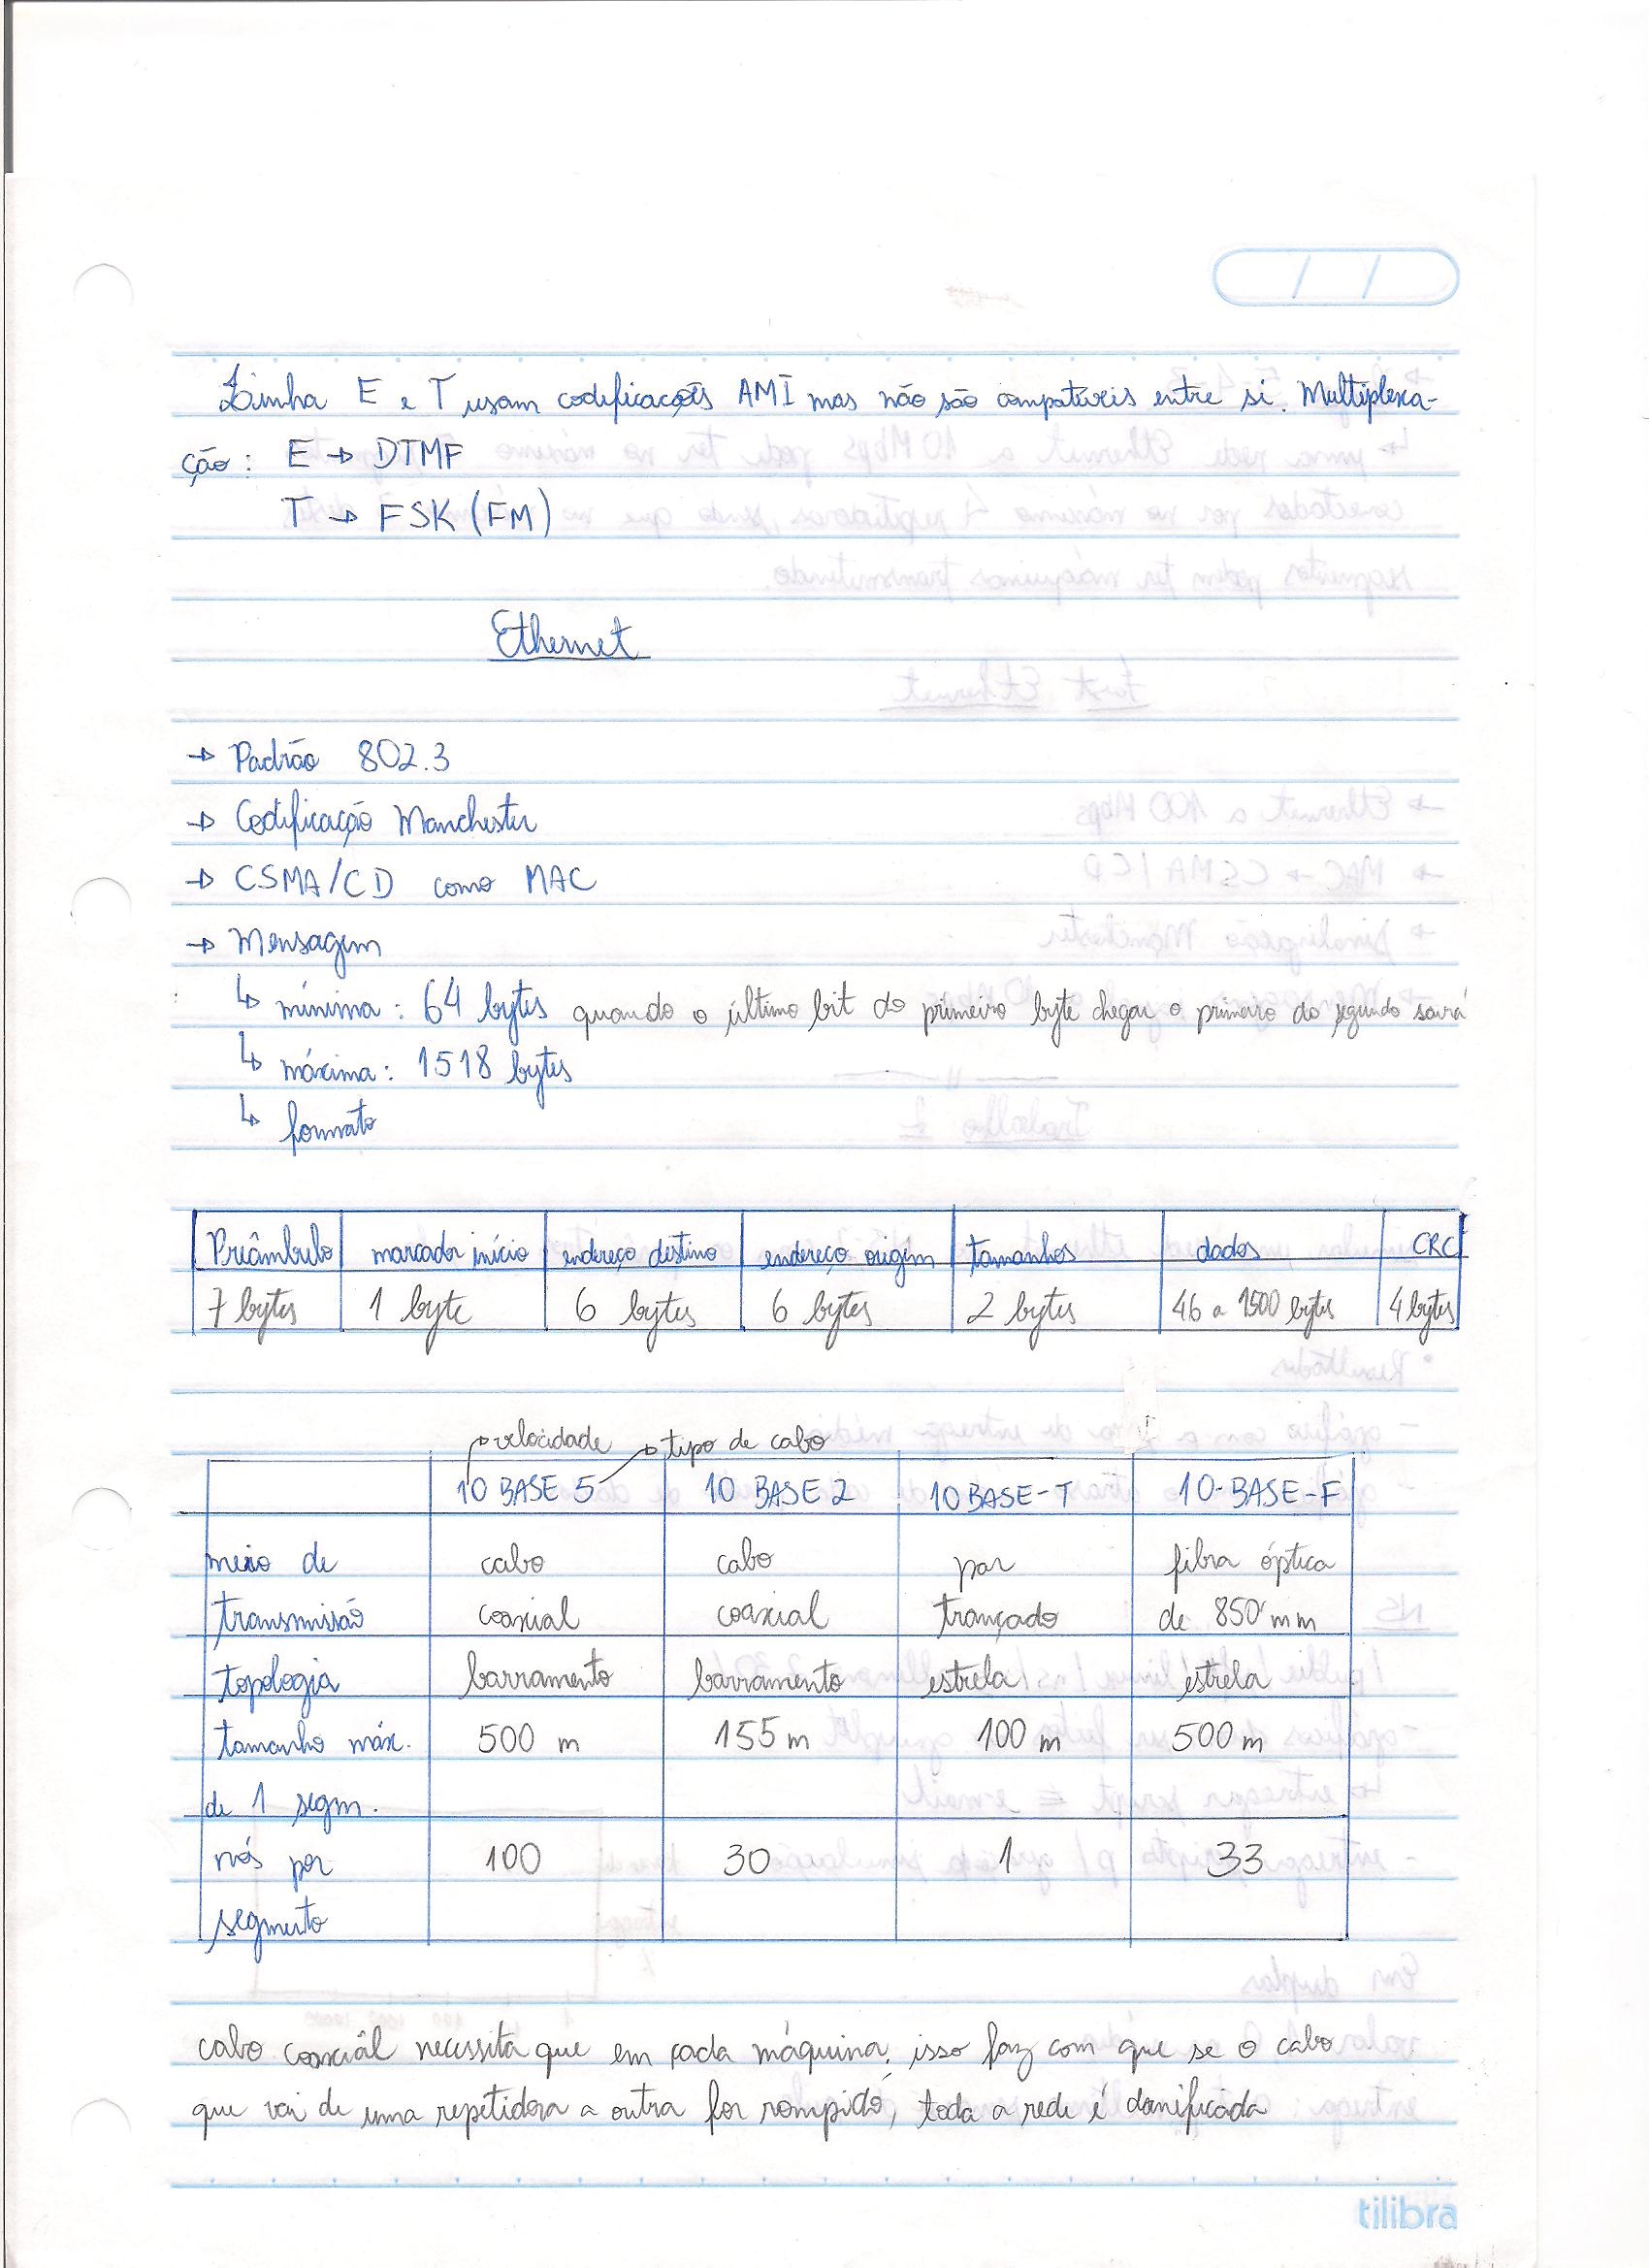 Linha E e T usam codificacações AMI mas não são compatíveis entre si. Multiplexa-
ção: E → DTMF
T → FSK (FM)
Ethernet
→ Padrão 802.3
→ Codificação Manchester
→ CSMA/CD como MAC
→ Mensagem
↳ mínima: 64 bytes quando o último bit do primeiro byte chegar o primeiro do segundo sairá
↳ máxima: 1518 bytes
↳ formato
Preâmbulo marcador início endereço destino endereço origem tamanhos dados CRC
7 bytes 1 byte 6 bytes 6 bytes 2 bytes 46 a 1500 bytes 4 bytes
→ velocidade → tipo de cabo
10 BASE 5 10 BASE 2 10 BASE-T 10-BASE-F
meio de cabo cabo par fibra óptica
transmissão coaxial coaxial trançado de 850 mm
topologia barramento barramento estrela estrela
tamanho máx. 500 m 155 m 100 m 500 m
de 1 segm.
nós por 100 30 1 33
segmento
cabo coaxial necessita que em cada máquina, isso faz com que se o cabo
que vai de uma repetidora a outra for rompido, toda a rede é danificada
tilibra